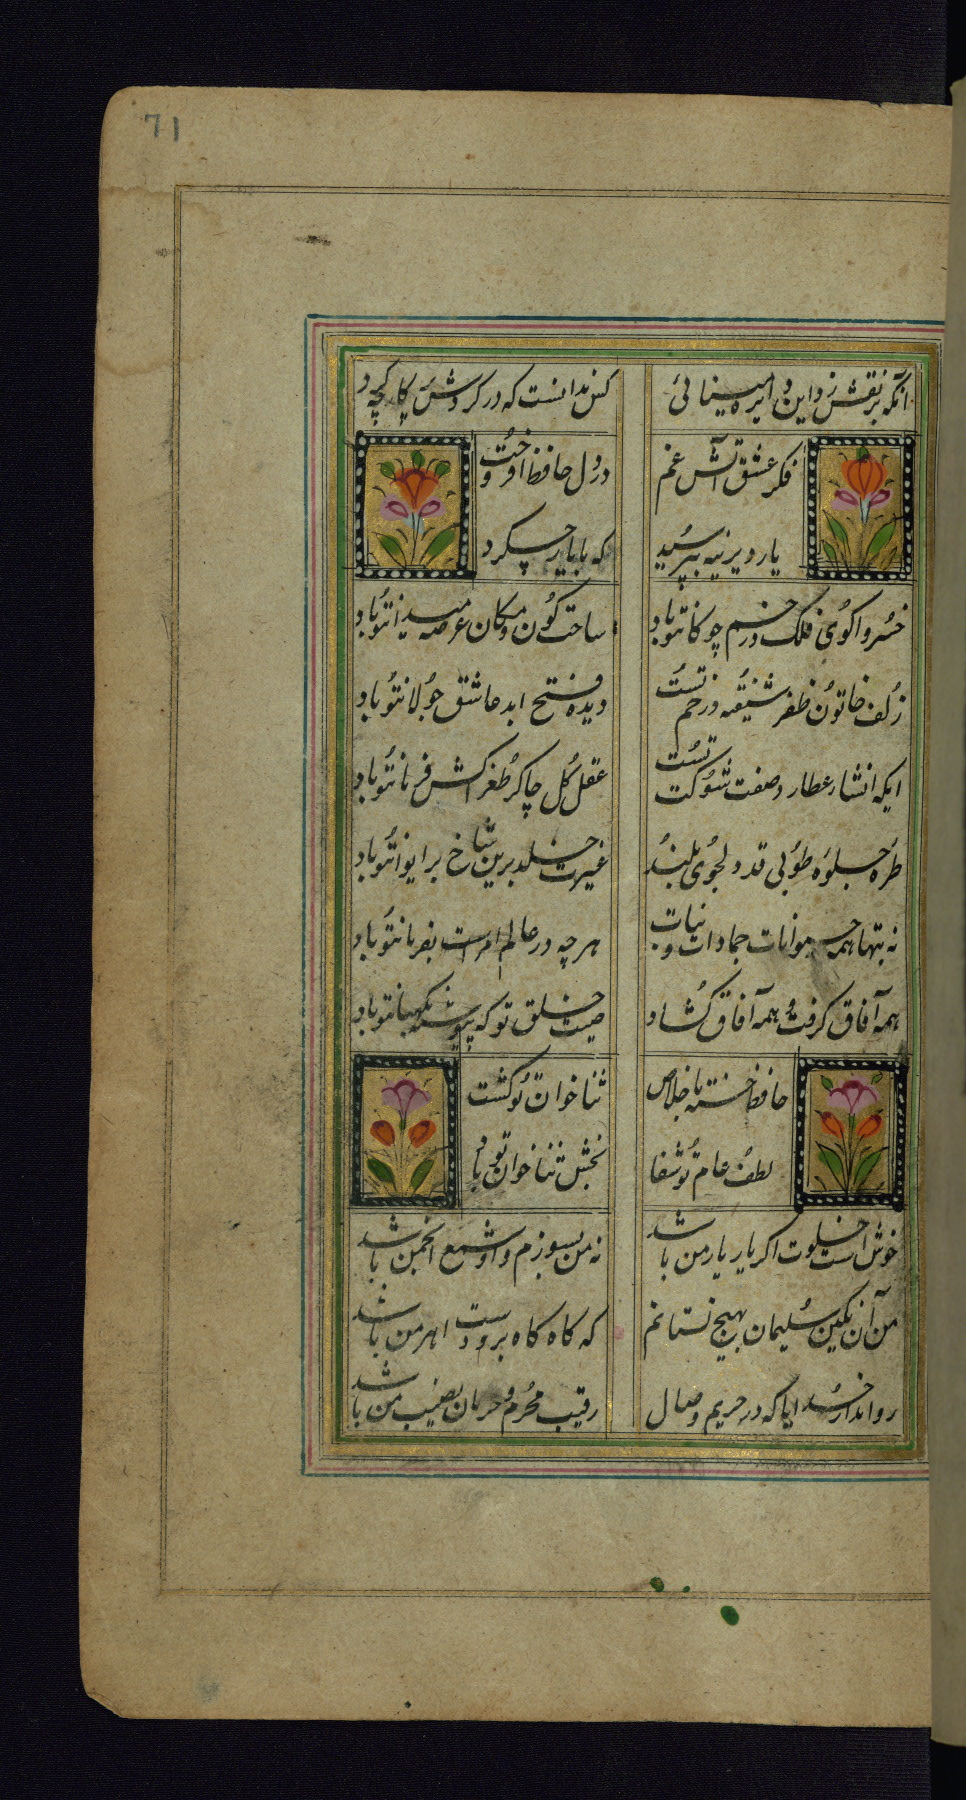 71
آنکه پر نقش زد این دایره مینائی
کس ندانست که در کردش پرکار چه کرد
فکر عشق آتش غم
در دل حافظ افروخت و
یار دیرینه به پرسید
که با یار چکرد
خسروا کوی فلک در خم چوکان تو باد
ساحت کون و مکان عرصه میدان تو باد
زلف خاتون ظفر شیفته در خم تست
دیده فتح ابد عاشق جولان تو باد
ایکه انشاء عطارد صفت شوکت تست
عقل کل چاکر طغراکش فرمان تو باد
طره جلوه طوبی قد دلجوی بلند
غیرت خلد برین شاخ بر ایوان تو باد
نه بتنها همه حیوانات جمادات و نبات
هر چه در عالم امر است بفرمان تو باد
همه آفاق کرفت و همه آفاق کشاد
صیت خلق تو که پیوسته نکهبان تو باد
حافظ خسته باخلاص
ثناخوان تو کشت
لطف عام تو شفا
بخش ثناخوان تو باد
خوش است خلوت اکر یار یار من باشد
نه من بسوزم و او شمع انجمن باشد
من آن نکین سلیمان بهیچ نستانم
که کاه کاه برو دست اهرمن باشد
روا مدار خدایا که در حریم وصال
رقیب محرم و حرمان نصیب من باشد